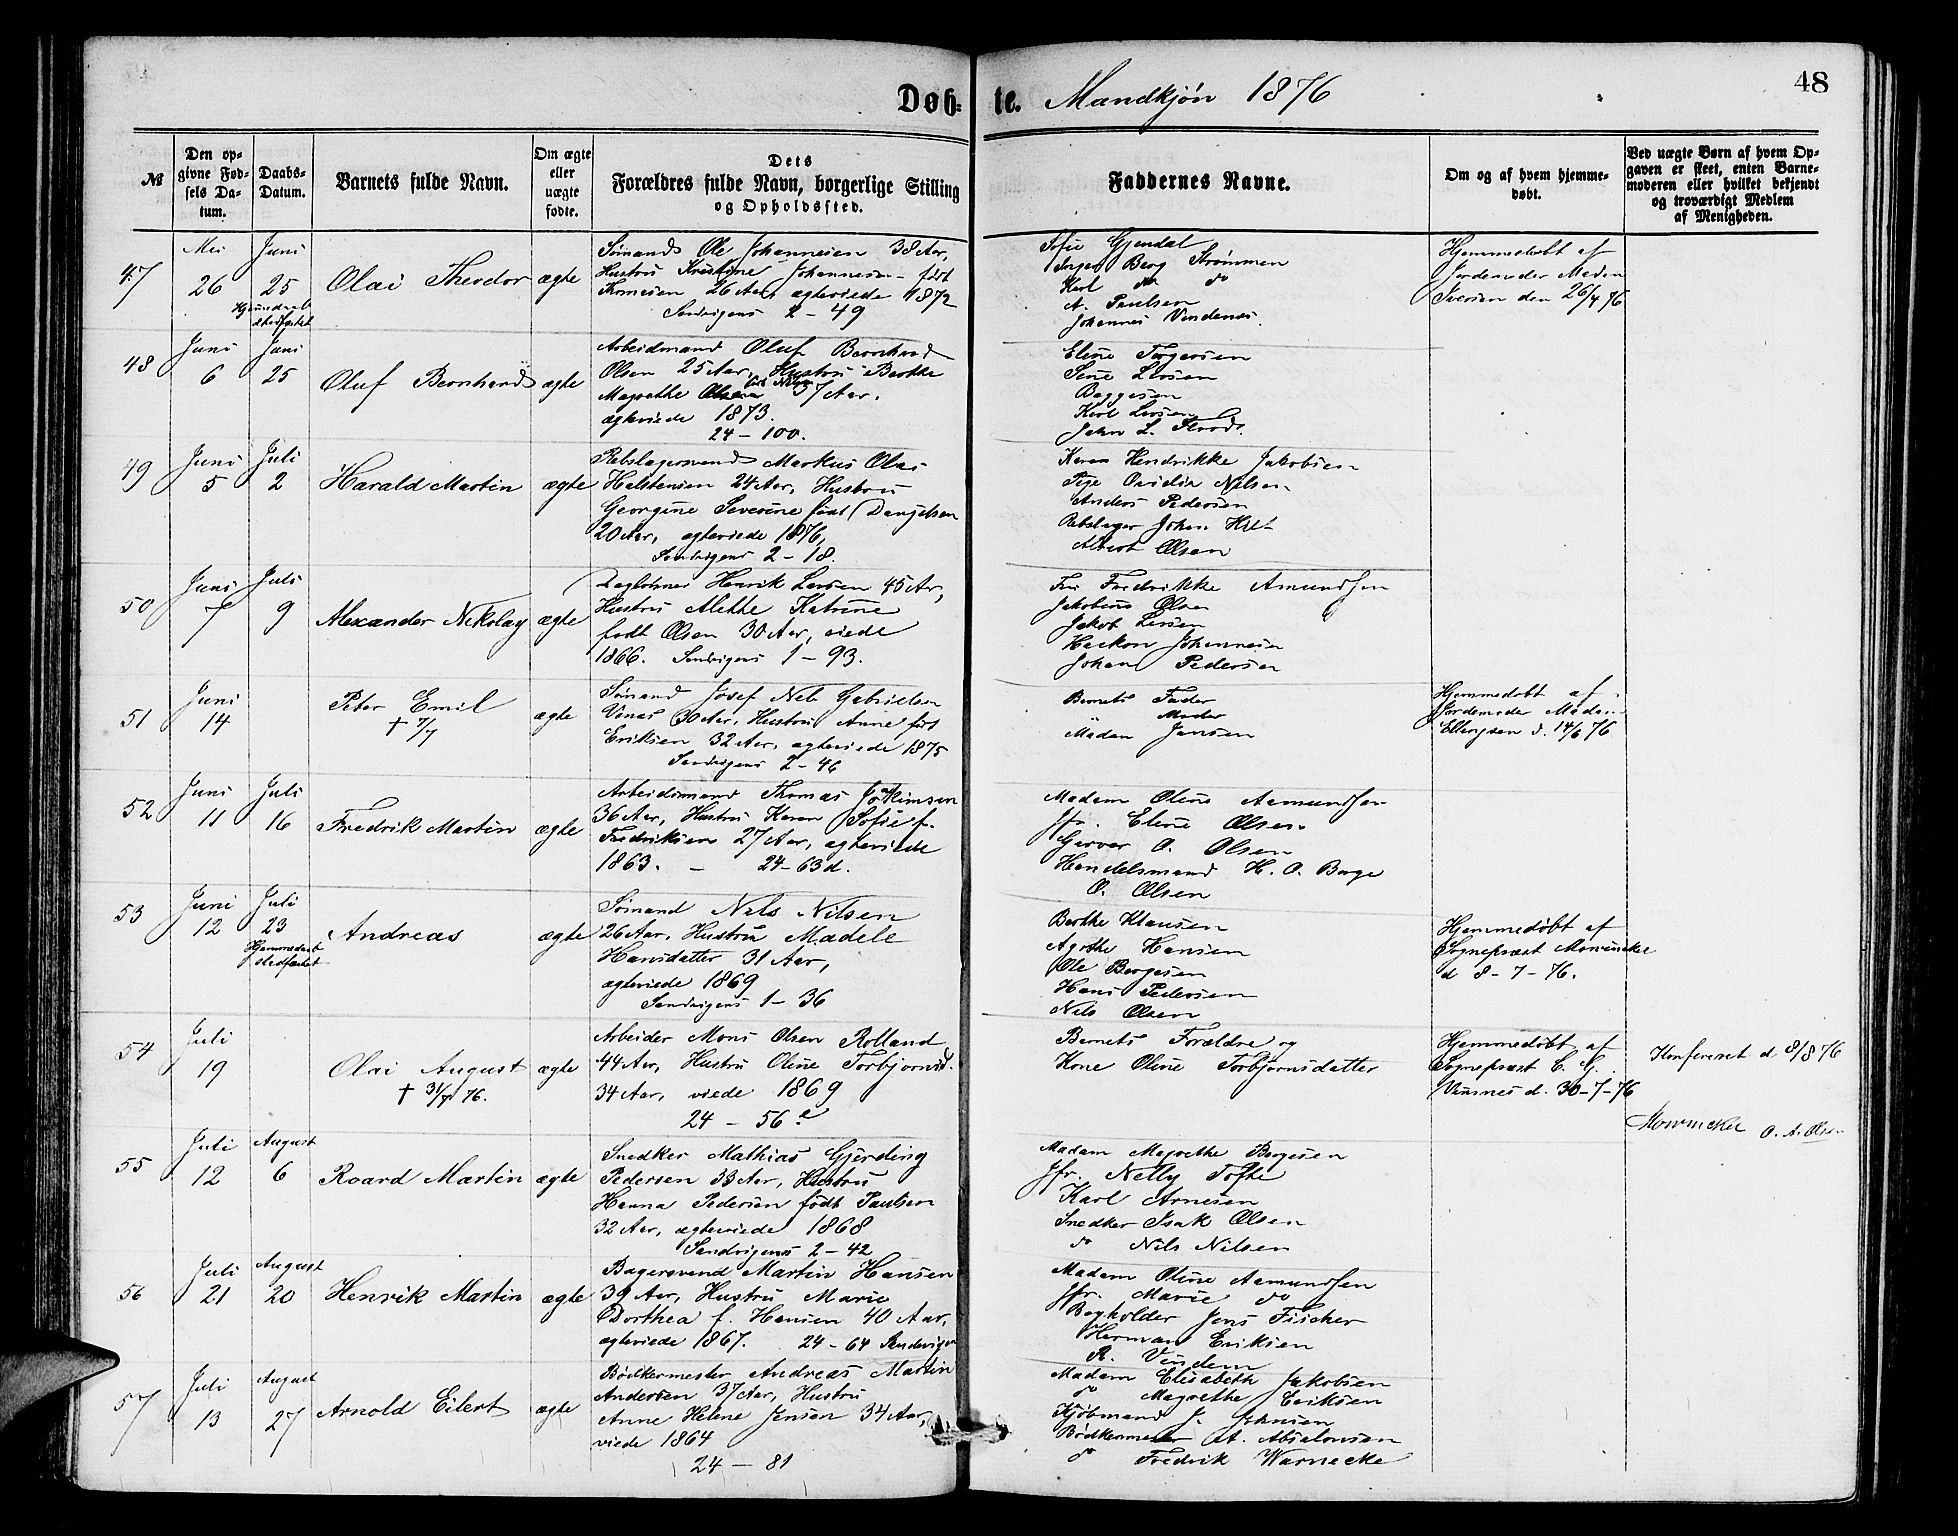 Døb- te. Mandkjøn 1876 48
№
Den op-
givne Fød-
sels Da-
tum.
Daabs-
Datum.
Barnets fulde Navn.
Om ægte
eller
uægte
fødte.
Dets
Forældres fulde Navn, borgerlige Stilling
og Opholdssted.
Faddernes Navne.
Om og af hvem hjemme-
døbt.
Ved uægte Børn af hvem Op-
gaven er skeet, enten Barne-
moderen eller hvilket bekjendt
og troværdigt Medlem
af Menigheden.
47
Mai
26
Juni
25
Hjemmedaab
stadfæstet
Olai Theodor
ægte
Sømand Ole Johannesen 38 Aar,
Hustru Kristine Johannesen født
26 Aar, ægteviede 1872
Sandvigens 2 - 49
Sofie Gjendal
Inger Berg Strømmen
Karl do do
A. Paulsen
Johannes Vindenes.
Hjemmedøbt af
Jordemoder Madam
Iversen den 26/4 76
48
Juni
6
Juni
25
Oluf Bernhard
ægte
Arbeidsmand Oluf Bernhard
Olsen 25 Aar, Hustru Berthe
Magrethe Olsen 37 Aar.
ægteviede 1873.
24 - 100.
Elene Torgersen
Sine Larsen
Baggesen
Karl Larsen
John L.
49
Juni
5
Juli
2
Harald Martin
ægte
Rebslagersvend Markus Olai
Halstensen 24 Aar, Hustru
Georgine Severine født Danjelsen
20 Aar, ægteviede 1876,
Sandvigens 2 - 18.
Karen Hendrikke Jakobsen
Pige Ovidia Nilsen
Anders Pedersen
Rebslager Johan
Albert Olsen
50
Juni
7
Juli
9
Alexander Nikolay
ægte
Dagløhner Henrik Larsen 45 Aar,
Hustru Methe Katrine
født Olsen 30 Aar, viede
1866. Sandvigens 1 - 93.
Fru Fredrikke Amundsen
Jakobine Olsen
Jakob Larsen
Haakon Johannesen
Johan Pedersen
51
Juni
14
Peter Emil
† 7/7
ægte
Sømand Josef Nels Gabrielsen
Vinas 30 Aar, Hustru Anne født
Eriksen 32 Aar, ægteviede 1875
Sandvigens 2 - 46
Barnets Fader
" Moder
Madam Jensen
Hjemmedøbt af
Jordemoder Madam
Ellingsen d. 14/6 76
52
Juni
11
Juli
16
Fredrik Martin
ægte
Arbeidsmand Thomas Joakimsen
36 Aar, Hustru Karen Sofie f.
Fredriksen 27 Aar, ægteviede
1863. - 24-63d.
Madam Oline Aamundsen
Jfr. Elene Olsen
Garver O. Olsen
Handelsmand H. O. Berge
O. Olsen
53
Juni
12
Juli
23
Hjemmedaab
stadfæstet
Andreas
ægte
Sømand Nils Nilsen
26 Aar, Hustru Madele
Hansdatter 31 Aar,
ægteviede 1869
Sandvigens 1 - 36
Berthe Klausen
Agathe Hansen
Ole Børgesen
Hans Pedersen
Nils Olsen
Hjemmedøbt af
Sognepræst Mowinckel
d 8 - 7 - 76.
54
Juli
19
Olai August
† 31/7 76.
ægte
Arbeider Mons Olsen Rolland
44 Aar, Hustru Oline Torbjørnsd.
34 Aar, viede 1869
24 - 56 a
Barnets Forældre og
Kone Oline Torbjørnsdatter
Hjemmedøbt af
Sognepræst C. G.
Vinsnes d. 30-7-76
Konfereret d 8/8 76
Mowinckel O. A. Olsen
55
Juli
12
August
6
Roard Martin
ægte
Snedker Mathias Gjerding
Pedersen 33 Aar, Hustru
Hanna Pedersen født Paulsen
32 Aar, ægteviede 1868
Sandvigens 2 - 42
Madam Magrethe Børgesen
Jfr. Nelly Tofte
Karl Arnesen
Snedker Isak Olsen
do Nils Nilsen
56
Juli
21
August
20
Henrik Martin
ægte
Bagersvend Martin Hansen
39 Aar, Hustru Marie
Dorthea f. Hansen 40 Aar,
ægteviede 1867. 24 - 64 Sandvigen
Madam Oline Aamundsen
Jfr. Marie do
Bogholder Jens Fischer
Herman Eriksen
R. Vindem
57
Juli
13
August
27
Arnold Eilert
ægte
Bødkermester Andreas Martin
Andersen 37 Aar, Hustru
Anne Helene Jensen 34 Aar,
viede 1864
24 - 81
Madam Elisabeth Jakobsen
do Magrethe Eriksen
Kjøbmand J. Johnsen
Bødkermester A. Absalonsen
do Fredrik Warnecke